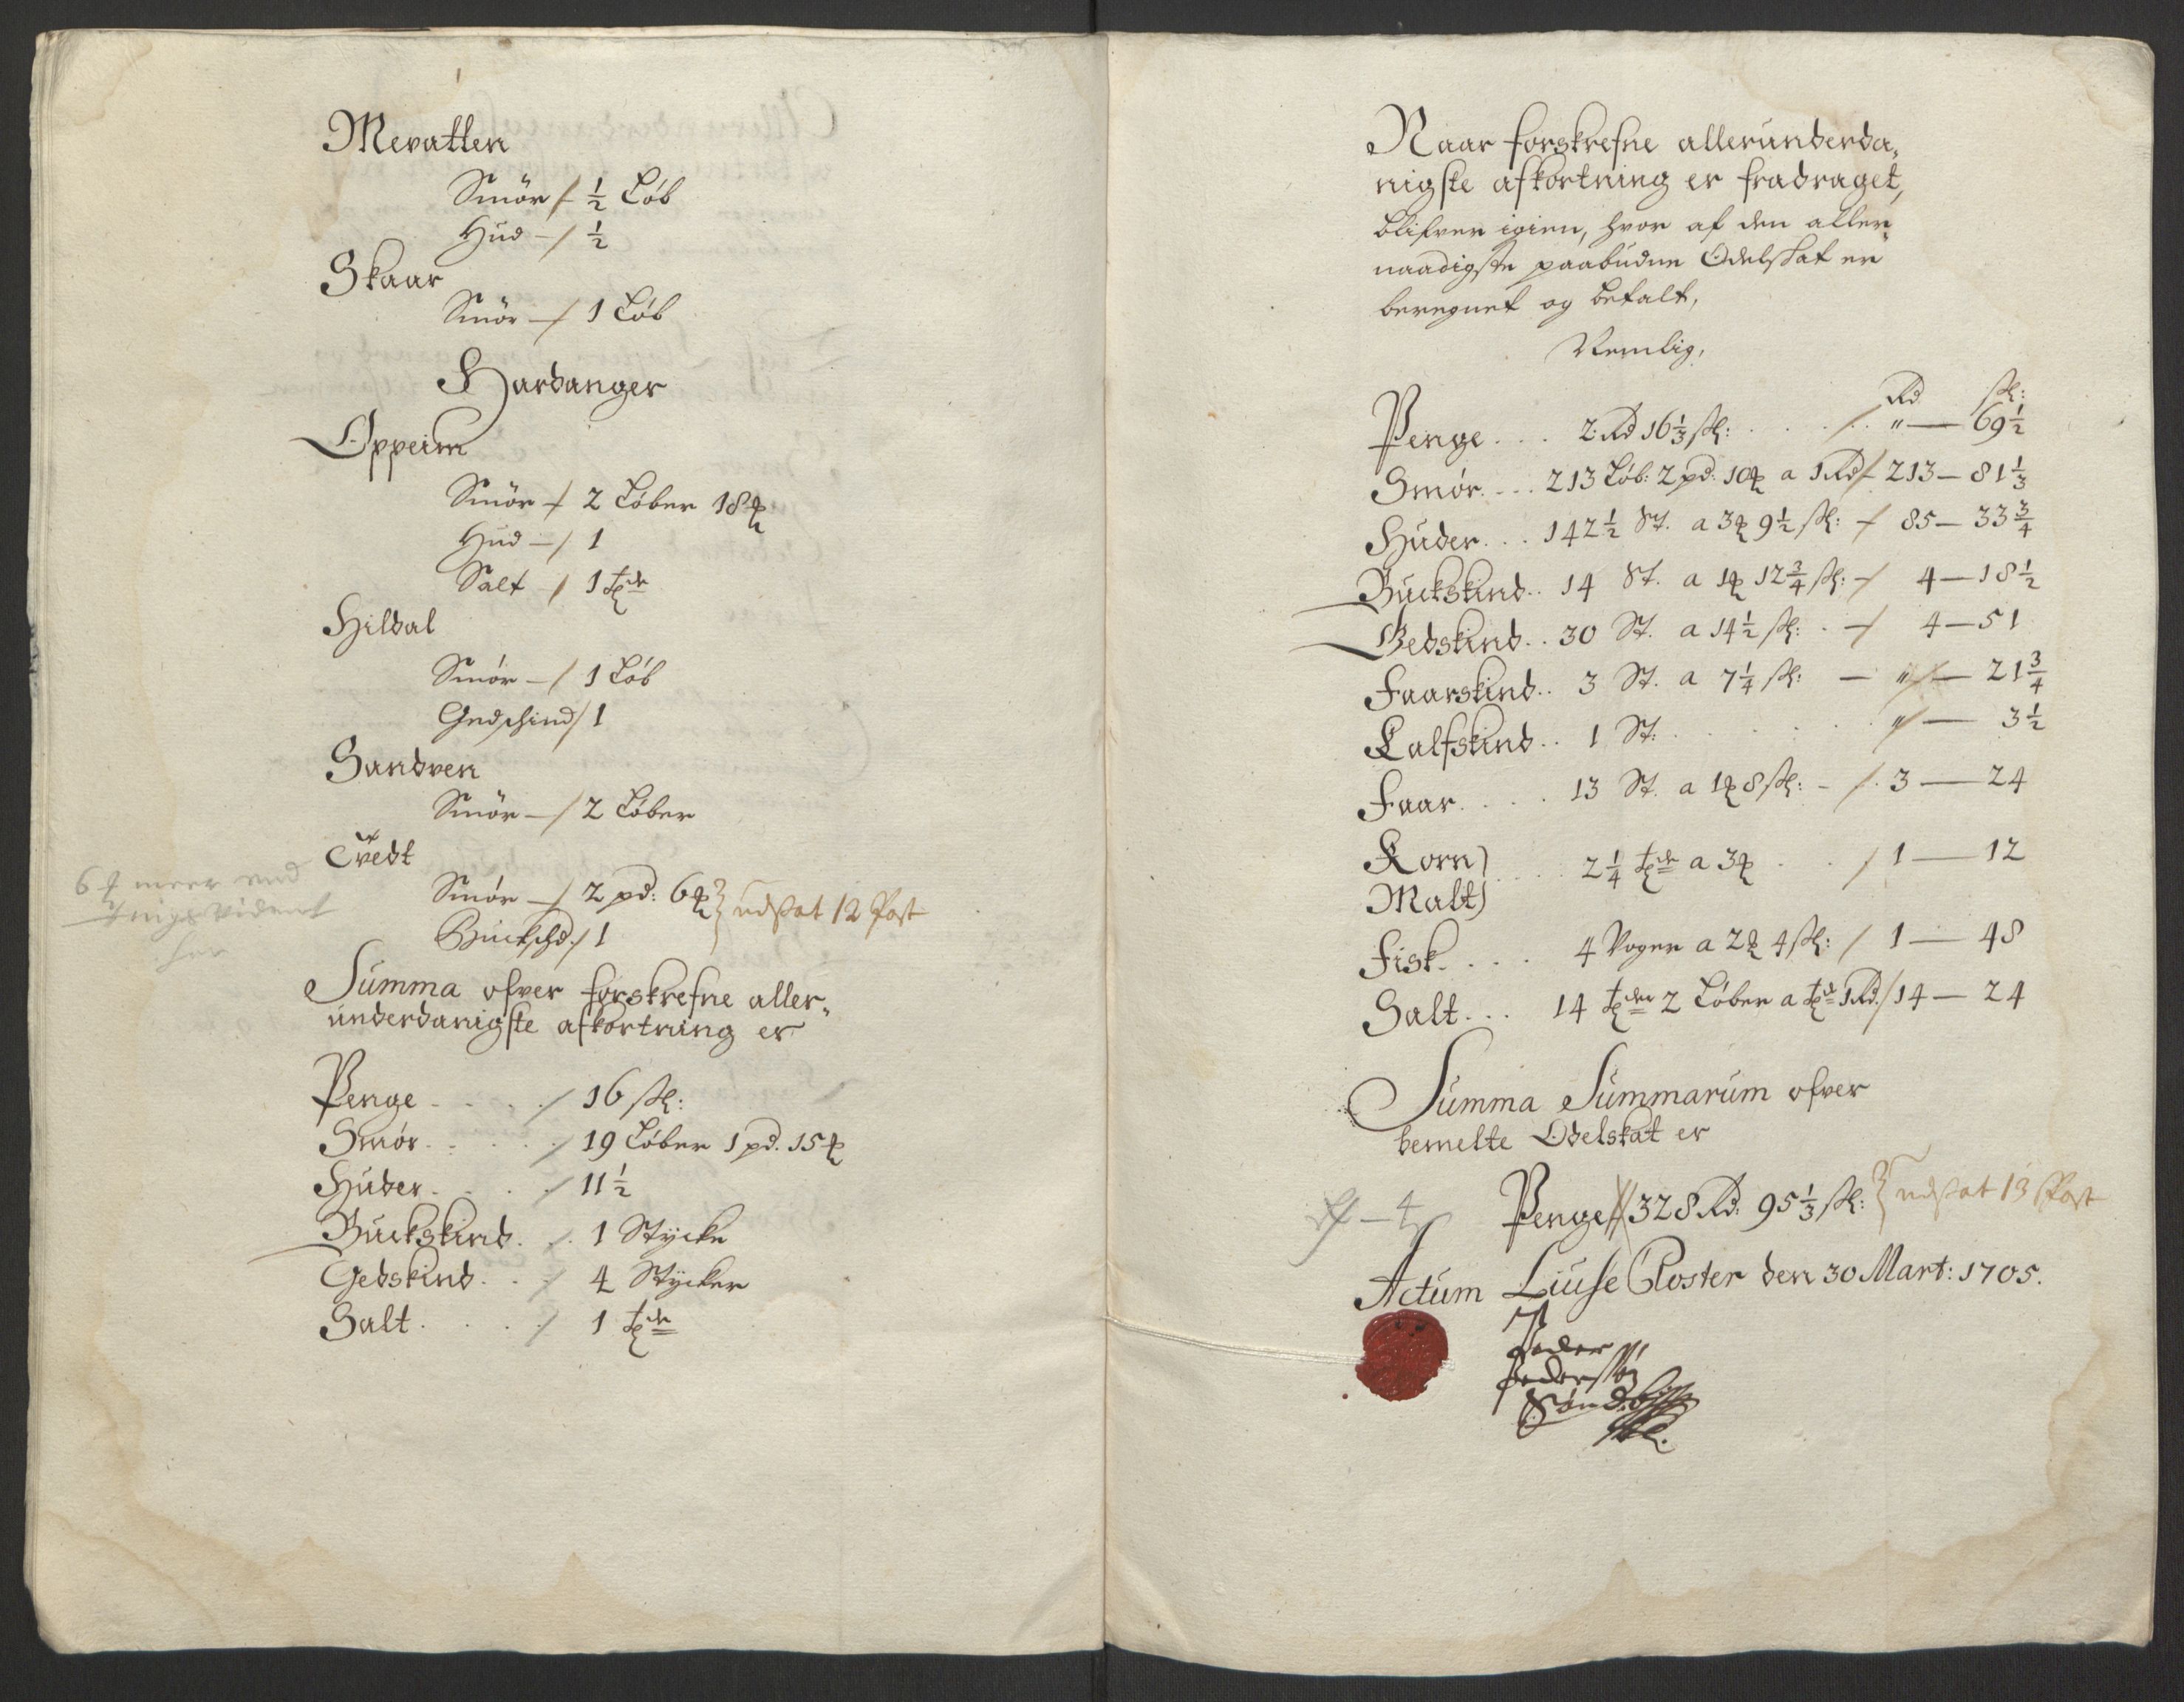 Mevatten
Smör ⁄ ½ Löb
Hud — ⁄ ½
Skaar
Smör — ⁄ 1 Löb
Hardanger
Oppeim
Smör ⁄ 2 Löber 18 ℔
Hud — ⁄ 1
Salt ⁄ 1 tde
Hildal
Smör — ⁄ 1 Löb
Gedschind ⁄ 1
Sandven
Smör — ⁄ 2 Löber
Tvedt
Smör — ⁄ 2 pd: 6 ℔ } udsat 12 Post
Buckschd: ⁄ 1
6 ℔ meer end
her
Summa ofver forskrefne aller,,
underdanigste afkortning er
Penge . . . . ⁄ 16 sk:
Smör . . . . ⁄ 19 Löber 1 pd. 15 ℔
Huder . . . ⁄ 11½
Buckskind . . ⁄ . 1 Stycke
Gedskind . . ⁄ 4 Stycker
Salt . . . . ⁄ 1 tde
Naar forskrefne allerunderda,,
nigste afkortning er fradraget,
blifver igien, hvor af den aller,,
naadigste paabudne Odelskat er
beregnet og betalt,
Nemlig,
Rd sk:
Penge . . . 2 Rd 16⅓ sk: . . . ⁄ . " — 69½
Smör . . . 213 Löb: 2 pd: 10 ℔ a 1 Rd ⁄ 213 — 81⅓
Huder . . . 142½ St. a 3 ℔ 9½ sk: ⁄ 85 — 33¾
Buckskind . . 14 St. a 1 ℔ 12¾ sk: ⁄ 4 — 18½
Gedskind . . 30 St. a 14½ sk: . — ⁄ 4 — 51
Faarskind . . 3 St. a 7¼ sk: — " ⁄ — 21¾
Kalfskind . . 1 St: . . . . " ⁄ — 3½
Faar . . . . 13 St. a 1 ℔ 8 sk: — ⁄ . 3 — 24
Korn)
Malt) . . . 2¼ tde a 3 ℔ . . . ⁄ 1 — 12
Fisk . . . . 4 Voger a 2 ℔ 4 sk: ⁄ 1 — 48
Salt . . . 14 tder 2 Löber a tde 1 Rd. ⁄ 14 — 24
Summa Summarum ofver
bemelte Odelskat er
Penge ⁄⁄ 328 Rd: 95⅓ sk: } udsat 13 Post
Actum Liuse Closter den 30 Mart: 1705.
Peder
Pedersøn